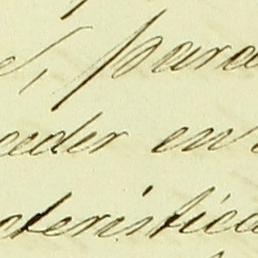 , para
eder en
cteristica